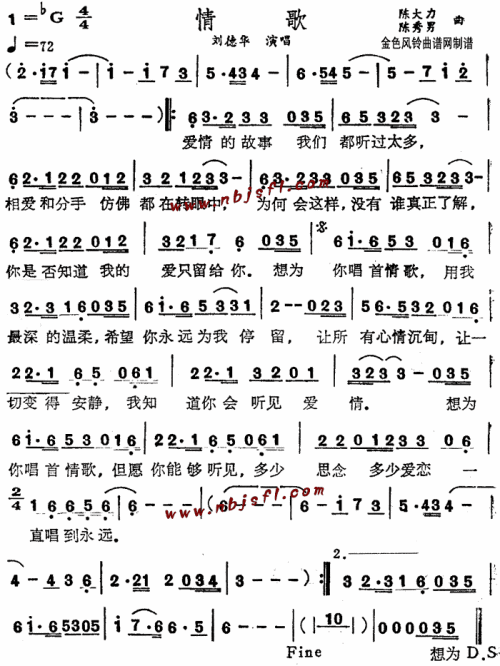 情 歌
1=♭G 4/4
♩=72
陈大力
陈秀男 曲
刘德华 演唱
金色风铃曲谱网制谱
(2·i7i-|i-i73|5·434-|6-545-|5-i2|
3---|3---):‖:63·233035|6532333-|
爱情的故事 我们 都听过太多,
62·122012|3212233-|63·233035|6532333-|
相爱和分手 仿佛 都在转眼中, 为何会这样,没有 谁真正了解,
62·122012|32176035|6i·653016|
你是否知道 我的 爱只留给你。想为 你唱首情歌, 用我
32·316035|6i·65331|2--023|56·532016|
最深的温柔,希望 你永远为我 停 留, 让所 有心情沉甸,让一
22·165061|22·13201|3233-035|
切变得安静, 我知 道你会听见爱 情。 想为
6i·653016|22·165061|2201233|06
你唱首情歌,但愿 你能够听见,多少 思念 多少爱恋 一
2/4 16656|6---|(6---|6-i73|5·434|
直唱到永远。
4-436|2·212034|3---):‖32·316035|
2.
6i·65305|i7·66·5|6---|(|10|)|000035‖
Fine 想为 D.S
www.nbjsfl.com
www.nbjsfl.com